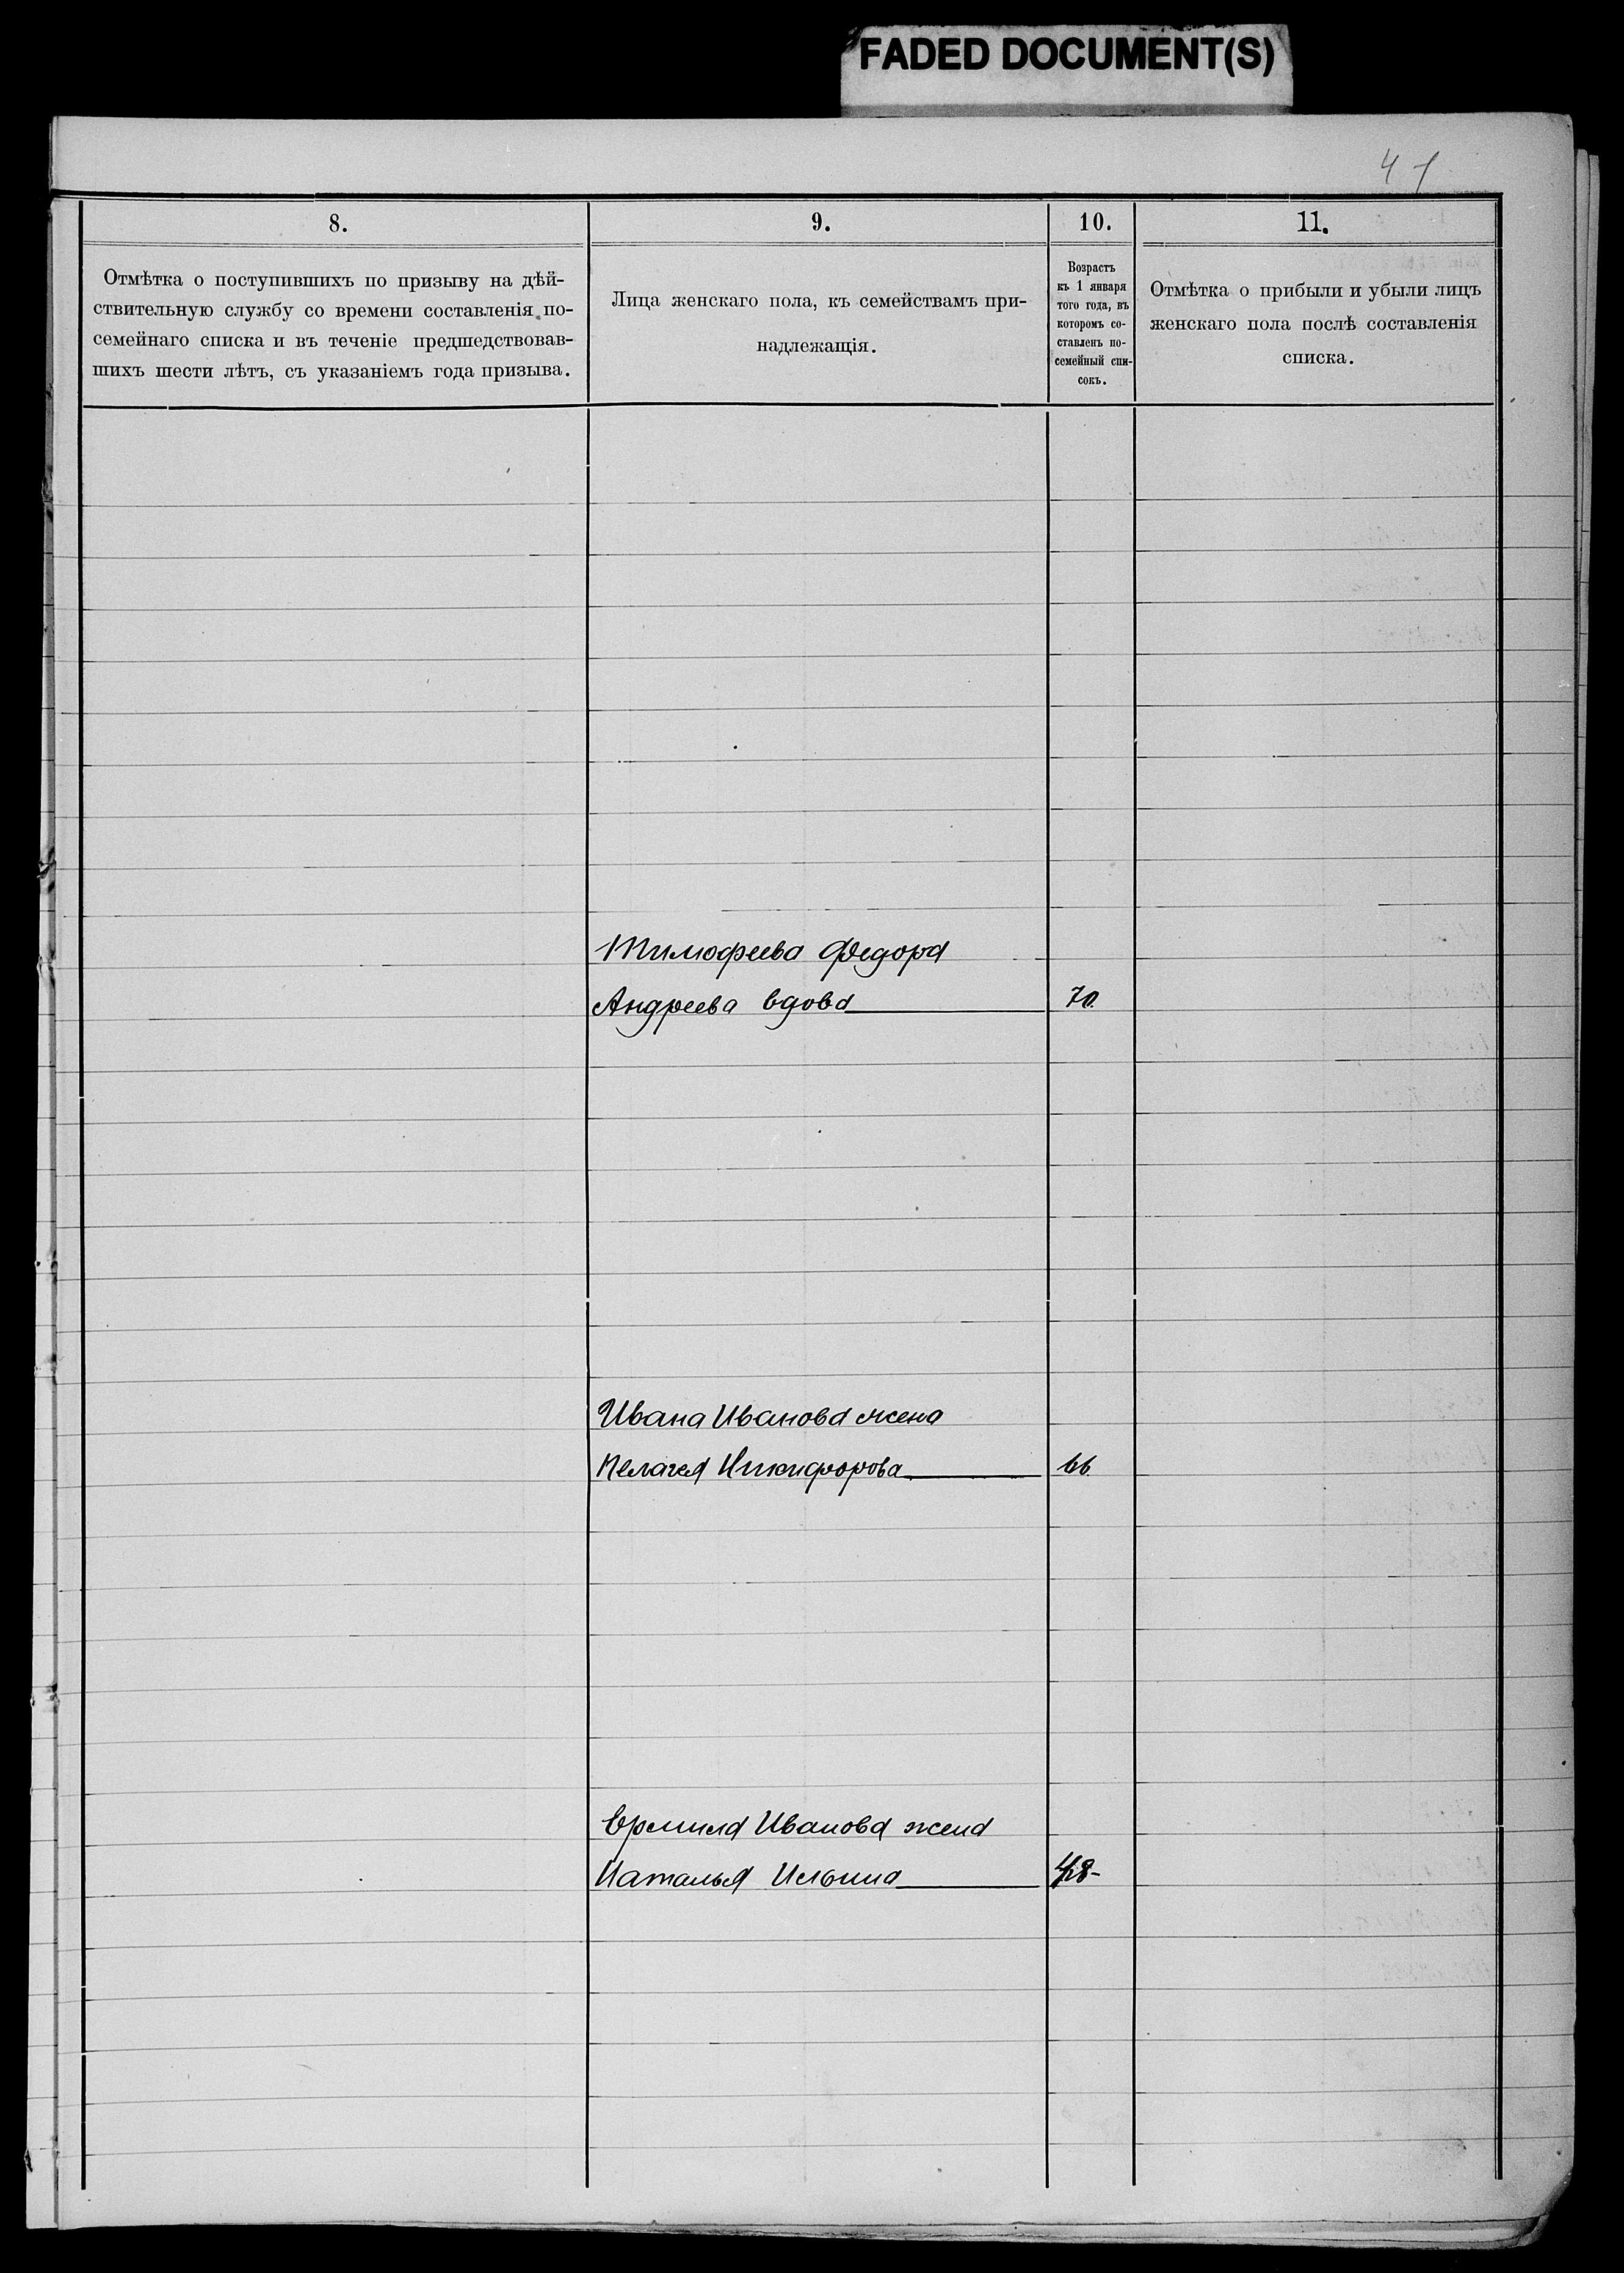 FADED DOCUMENT(S)
41
8.
9.
10.
11.
Отмѣтка о поступившихъ по призыву на дѣй-
ствительную службу со времени составленія по-
семейнаго списка и въ теченіе предшедствовав-
шихъ шести лѣтъ, съ указаніемъ года призыва.
Лица женскаго пола, къ семействамъ при-
надлежащія.
Возрастъ
къ 1 января
того года, въ
которомъ со-
ставленъ по-
семейный спи-
сокъ.
Отмѣтка о прибыли и убыли лицъ
женскаго пола послѣ составленія
списка.
Тимофеева Федора
Андреева вдова 70.
Ивана Иванова жена
Пелагея Никифорова 66.
Ермила Иванова жена
Наталья Ильина